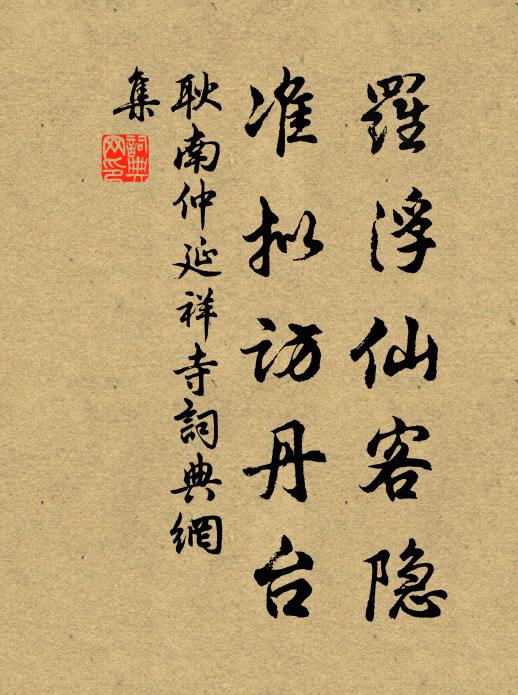 羅浮仙客隐
准拟访丹台
耿南仲延祥寺詞典網
集
詞典
网印